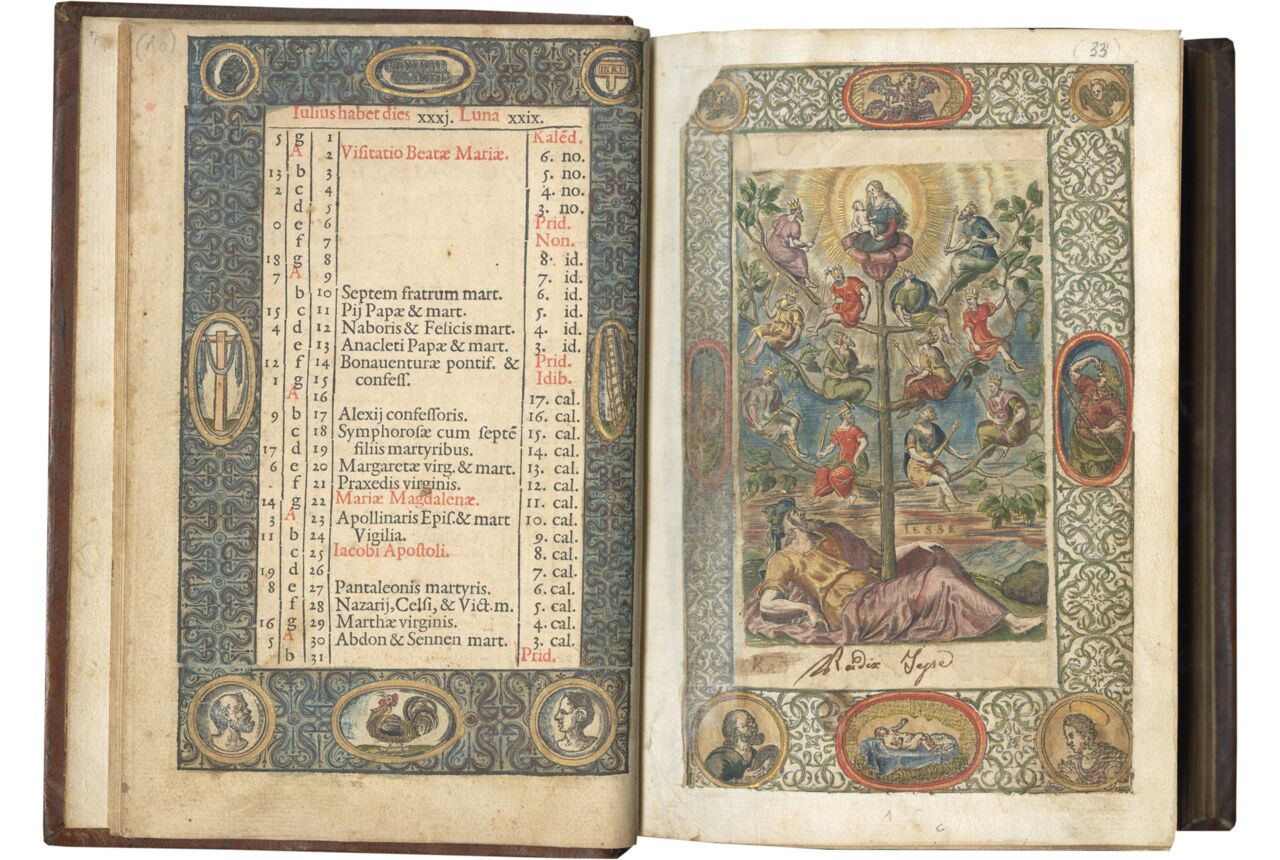 (16)
I N R I
Iulius habet dies xxxj. Luna xxix.
5 g 1 Kalẽd.
A 2 Viſitatio Beatæ Mariæ. 6. no.
13 b 3 5. no.
2 c 4 4. no.
d 5 3. no.
0 e 6 Prid.
f 7 Non.
18 g 8 8. id.
7 A 9 7. id.
b 10 Septem fratrum mart. 6. id.
15 c 11 Pij Papæ & mart. 5. id.
4 d 12 Naboris & Felicis mart. 4. id.
e 13 Anacleti Papæ & mart. 3. id.
12 f 14 Bonauenturæ pontif. & Prid.
1 g 15 confeſſ. Idib.
A 16 17. cal.
9 b 17 Alexij confeſſoris. 16. cal.
c 18 Symphoroſæ cum septẽ 15. cal.
17 d 19 filiis martyribus. 14. cal.
6 e 20 Margaretæ virg. & mart. 13. cal.
f 21 Praxedis virginis. 12. cal.
14 g 22 Mariæ Magdalenæ. 11. cal.
3 A 23 Apollinaris Epiſ. & mart 10. cal.
11 b 24 Vigilia. 9. cal.
c 25 Iacobi Apoſtoli. 8. cal.
19 d 26 7. cal.
8 e 27 Pantaleonis martyris. 6. cal.
f 28 Nazarij, Celſi, & Vict. m. 5. cal.
16 g 29 Marthæ virginis. 4. cal.
5 A 30 Abdon & Sennen mart. 3. cal.
b 31 Prid.
(33)
IESSE
Radix Jeſse